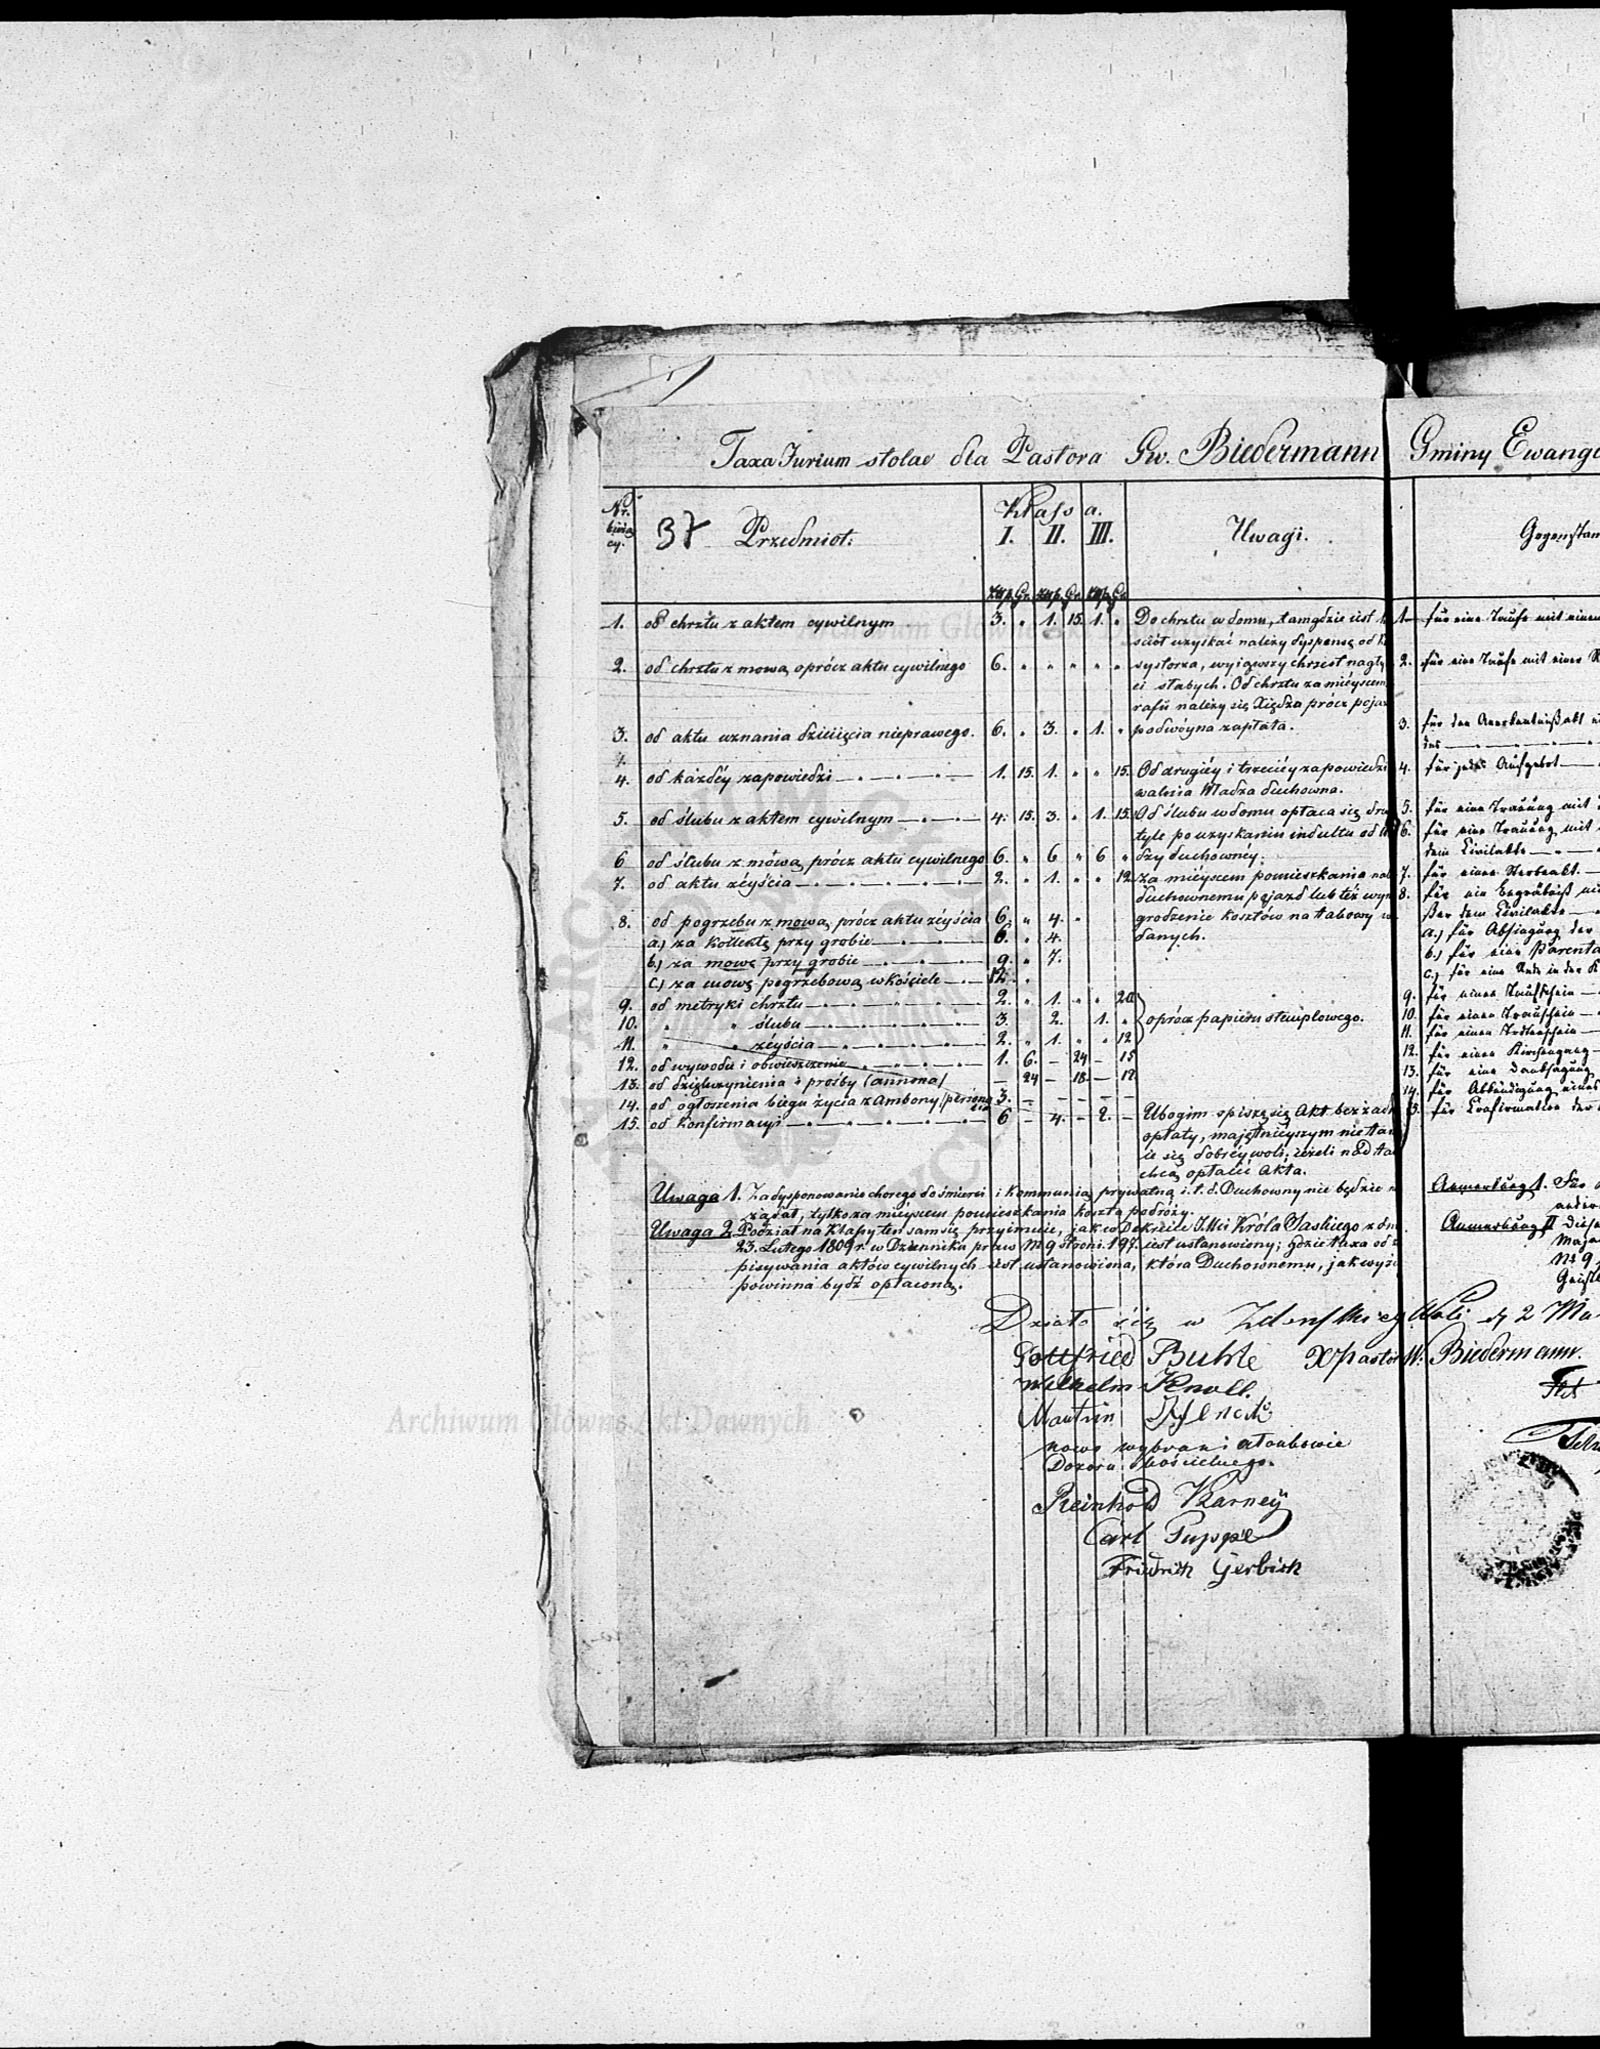 Taxa Jurium stolae dla Pastora Gw. Biedermann Gminy Ewange
Nr. bieżą cy. 37 Przedmiot: Klassa. I. II. III. Uwagi. Gegenstan
Złp. Gr. Złp. Gr. Złp. Gr.
1. od chrztu z aktem cywilnym 3. " 1. 15. 1. " Do chrztu w domu, tam gdzie iest
ściół uzyskać należy dyspensę od
2. od chrztu z mową oprócz aktu cywilnego 6. " " " " " systorza, wyiąwszy chrzest nagły
ci słabych. Od chrztu za mieyscem
rafii należy się Xiędza prócz pojaz
3. od aktu uznania dziecięcia nieprawego. 6. " 3. " 1. " podwóyna zapłata.
4. od każdéy zapowiedzi 1. 15. 1. " " 15. Od drugiéy i trzeciéy zapowiedzi
walnia Władza duchowna.
5. od ślubu z aktem cywilnym 4. 15. 3. " 1. 15. Od ślubu w domu opłaca się dru
tyle po uzyskaniu indultu od
6 od ślubu z mówą prócz aktu cywilnego 6. " 6 " 6 " dzy duchownéy.
7. od aktu zéyścia 2. " 1. " " 12 za mieyscem pomieszkania nal
duchownemu pojazd lub téż wyn
8. od pogrzebu z mową prócz aktu zéyścia 6. " 4. " grodzenie kosztów na takowy
a.) za kollektę przy grobie 6. " 4. danych.
b.) za mowę przy grobie 9. " 7.
c.) za mowę pogrzebową w Kościele 12. "
9. od metryki chrztu 2. " 1. " " 20
10. " " ślubu 3. 2. 1. " oprócz papieru stemplowego.
11. " " zéyścia 2. " 1. " " 12
12. od wywodu i obwieszczenia 1. 6. — 24 — 15
13. od dziękczynienia i prośby (annona) — 24 — 18 — 12
14. od ogłoszenia biegu życia z Ambony 3. — — — — —
15. od konfirmacyi 6 — 4. — 2. — Ubogim spiszę się Akt bez żad
opłaty, majętniéyszym nie
ie się dobréy woli, ieżeli nad ta
chcą opłacić Akta.
Uwaga 1. Za dysponowanie chorego do śmierci i Kommunią prywatną i.t.d. Duchowny nie będzie
żądał, tylko za mieyscem pomieszkania koszta podróży.
Uwaga 2. Podział na Klassy ten sam się przyimuie, jak w Dekrecie JMci Króla Saskiego z dn
23. Lutego 1809 r. w Dzienniku praw № 9 stroni. 197. iest ustanowiony; gdzie taxa od
pisywania aktów cywilnych iest ustanowiona, która Duchownemu, jak wyż
powinna bydź opłaconą.
1. für eine Taufe mit einem
2. für eine Taufe mit einer
3. für den Anerkentnißakt
4. für jedes Aufgebot
5. für eine Trauung mit
6. für eine Trauung mit
dem Civilakte
7. für einen Sterbeakt.
8. für ein Begräbniß
ßer dem Civilakte
a.) für Absingung der
b.) für eine Parenta
c.) für eine Rede in der K
9. für einen Taufschein
10. für einen Trauschein
11. für einen Todtenschein
12. für einen Kirchengang
13. für eine Danksagung
14. für Abkündigung eines
15. für Confirmation der
Anmerkung 1. Für
Anmerkung II Diese
№ 9
Geistl
Działo się w Zduńskiey Woli d. 2 Ma
Gottfried Buhle X Pastor W. Biedermann.
Wilhelm Knoll.
Martin
nowo wybrani członkowie
Dozoru Kościelnego.
Reinhold Karney
Carl Puppe
Fridrich Gerbich
Archiwum Główne Akt Dawnych